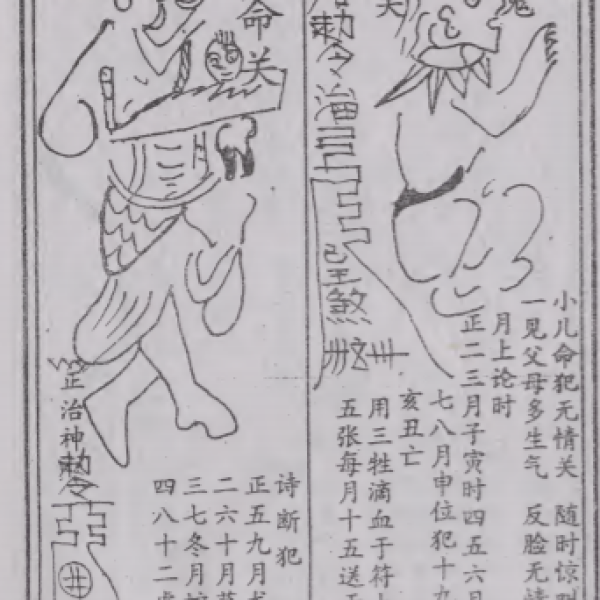 小儿命犯无情关 随时惊
一见父母多生气 反脸无
月上论时
正二三月子寅时四五六月
七八月申位犯十九
亥丑亡
用三牲滴血于符
五张每月十五送
关
勅令治
煞
命关
诗断犯
正五九月
二六十月
三七冬月
四八十二
正治神勅令